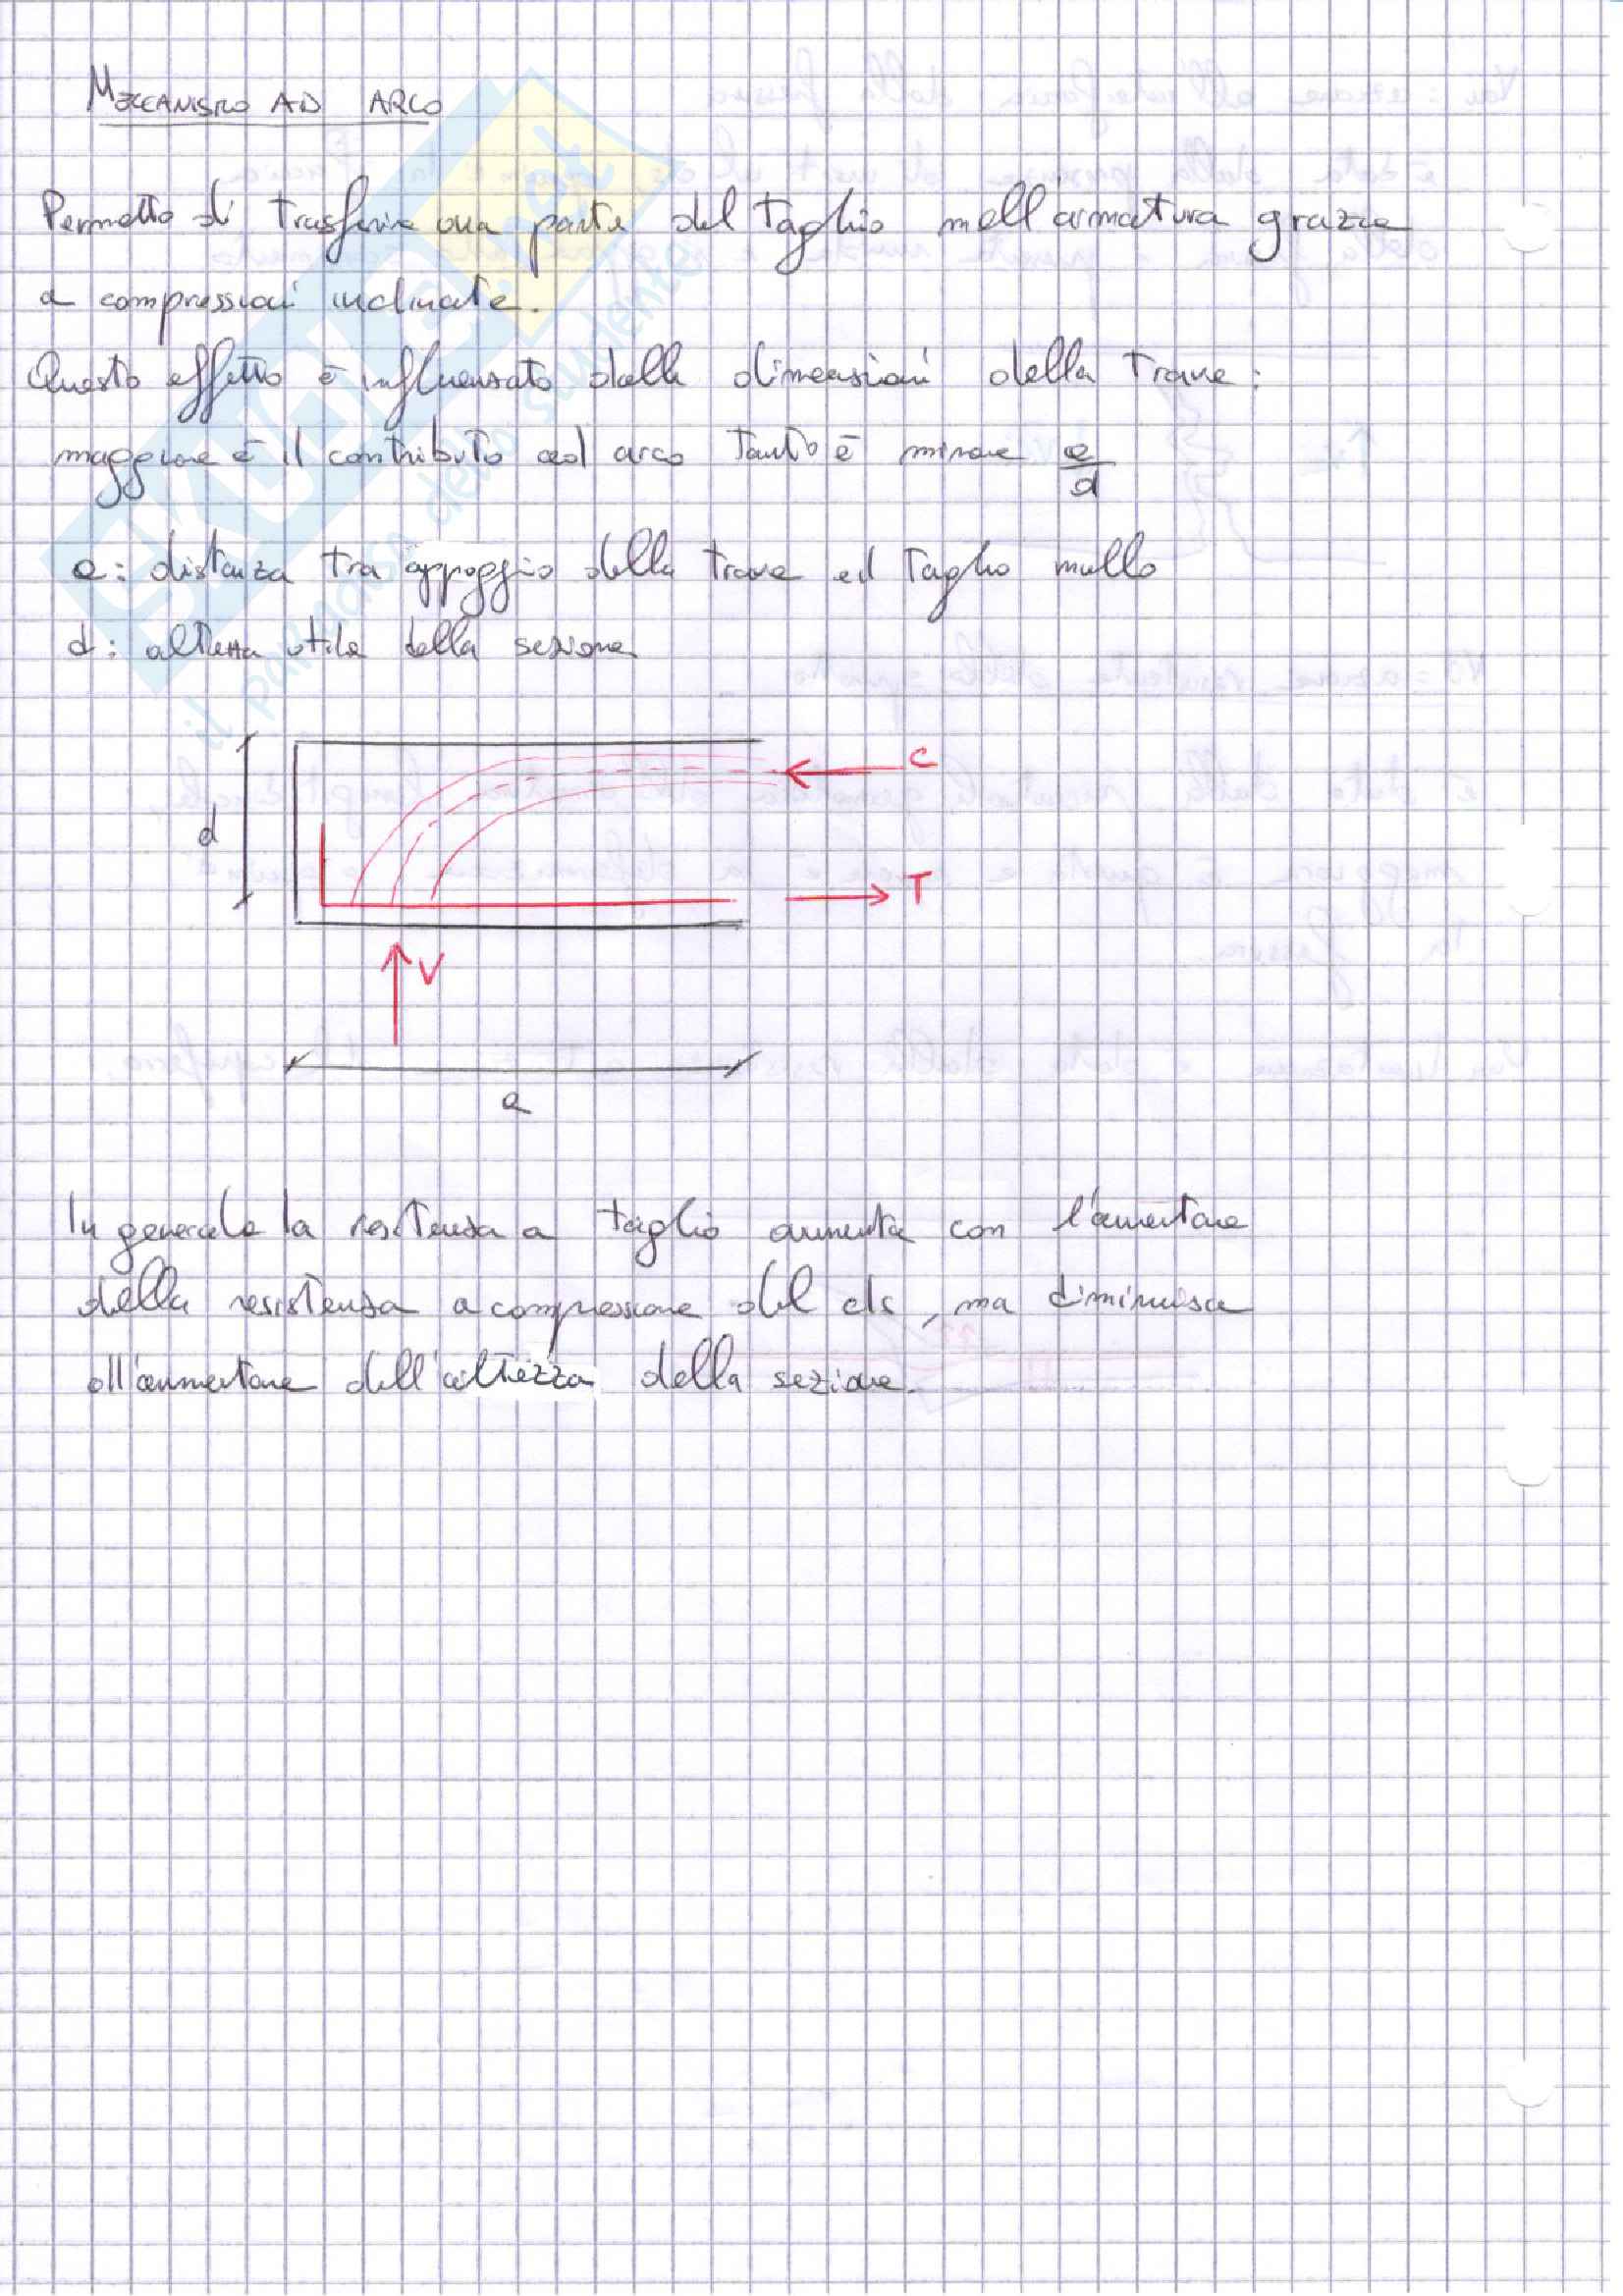 MECCANISMO AD ARCO
Permette di trasferire una parte del taglio nell'armatura grazie
a compressioni inclinate.
Questo effetto è influenzato dalle dimensioni della trave:
maggiore è il contributo ad arco tanto è minore a/d
a: distanza tra appoggio della trave ed taglio nullo
d: altezza utile della sezione
C
d
T
V
a
In generale la resistenza a taglio aumenta con l'aumentare
della resistenza a compressione del cls, ma diminuisce
all'aumentare dell'altezza della sezione.
SKUOLA.net
il paradiso dello studente